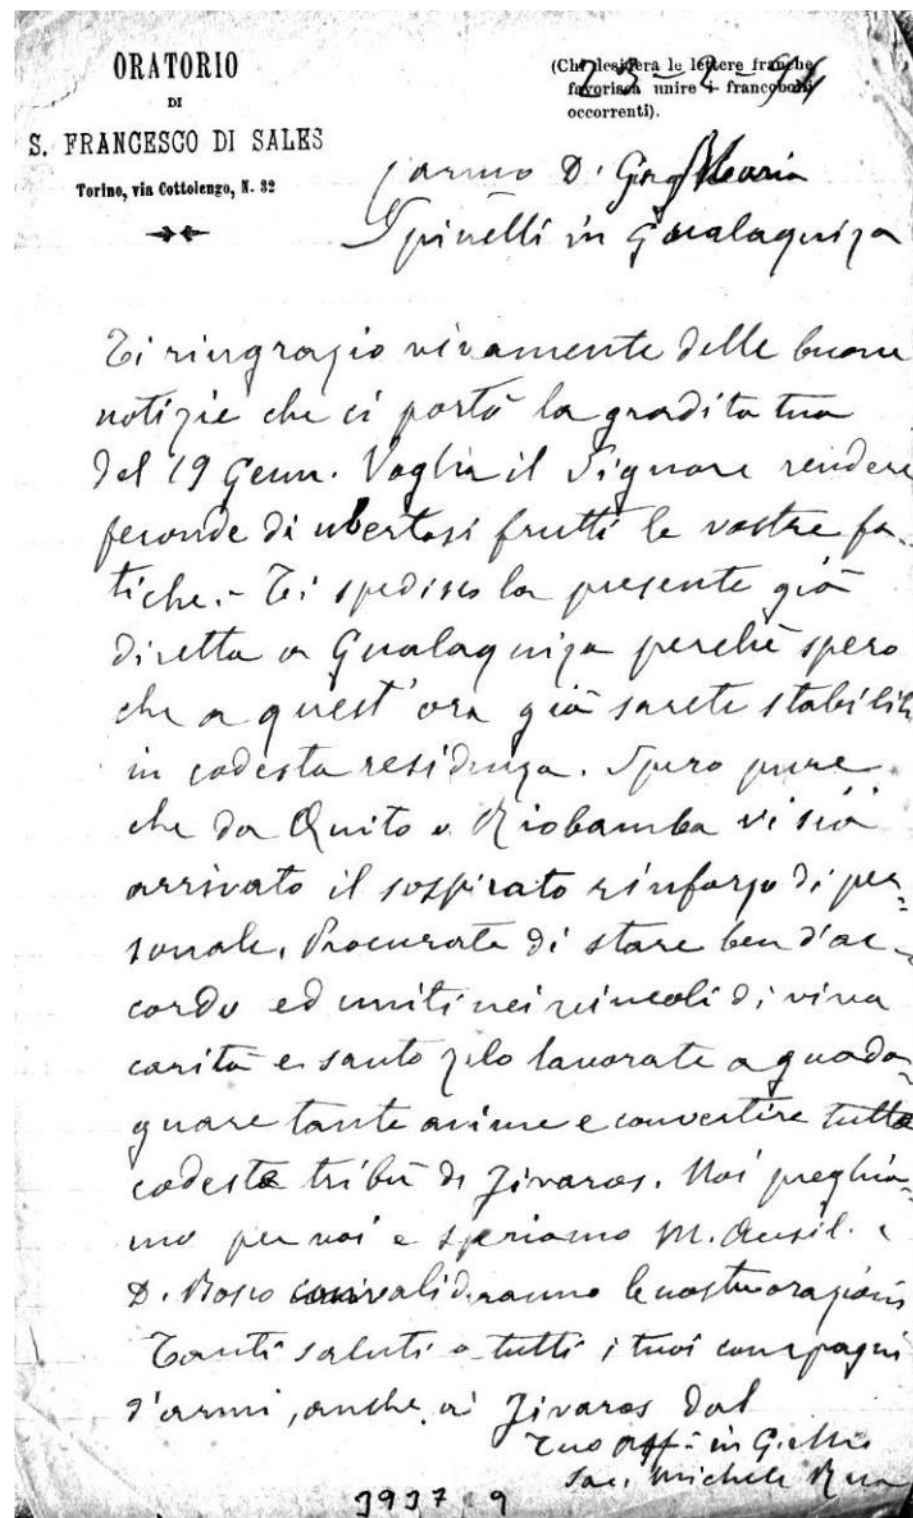 ORATORIO
DI
S. FRANCESCO DI SALES
Torino, via Cottolengo, N. 32
(Chi desidera le lettere franche
favorisca unire i francobolli
occorrenti).
23-2-94
Carmo D. Maria
Spinelli in Gualaquiza
Ti ringrazio vivamente delle buone
notizie che ci portò la gradita tua
del 19 Genn. Voglia il Signore rendere
feconde di ubertosi frutti le vostre fa-
tiche.- Ti spedisco la presente già
diretta a Gualaquiza perchè spero
che a quest'ora già sarete stabiliti
in codesta residenza. Spero pure
che da Quito o Riobamba vi sia
arrivato il sospirato rinforzo di per=
sonale. Procurate di stare ben d'ac-
cordo ed uniti nei vincoli di viva
carità e santo zelo lavorate a guada-
gnare tante anime e convertire tutta
codesta tribù di Jivaros. Noi preghia-
mo per voi e speriamo M. Ausil. e
D. Bosco convalideranno le nostre orazioni
Tanti saluti a tutti i tuoi compagni
d'armi, anche ai Jivaros dal
Tuo aff. in G. e Ma
Sac. Michele Rua
3937 9